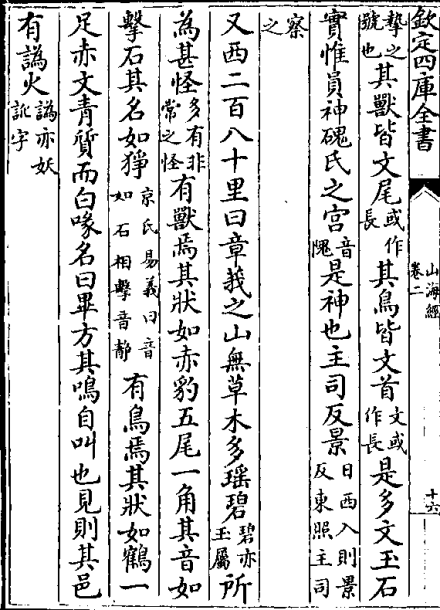 欽定四庫全書
山海經
卷二
十六
摯之號也其獸皆文尾或作長其鳥皆文首文或作長是多文玉石
實惟員神磈氏之宫音隗是神也主司反景日西入則景反東照主司
察之
又西二百八十里曰章莪之山無草木多瑶碧碧亦玉屬所
為甚怪多有非常之怪有獸焉其狀如赤豹五尾一角其音如
擊石其名如猙京氏易義曰音如石相擊音静有鳥焉其狀如鶴一
足赤文青質而白喙名曰畢方其鳴自叫也見則其邑
有譌火譌亦妖訛字